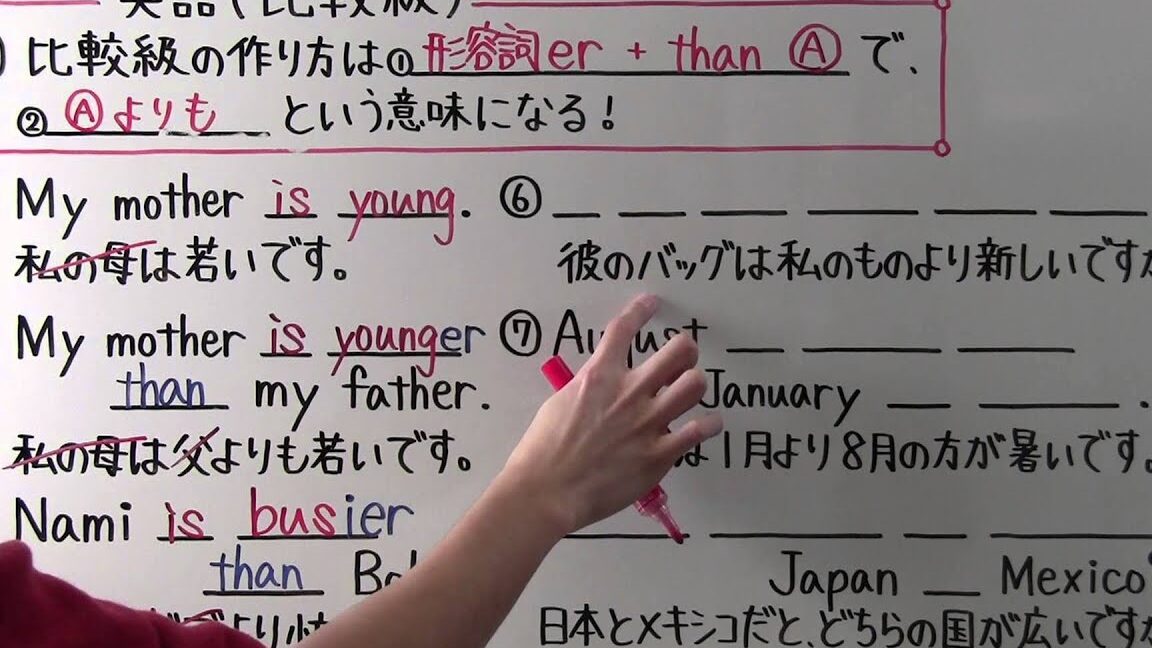 英語(比較級)
比較級の作り方は①形容詞er + than Ⓐ で、
②Ⓐよりも という意味になる!
My mother is young.
私の母は若いです。
My mother is younger
than my father.
私の母は父よりも若いです。
Nami is busier
than
より忙
⑥
彼のバッグは私のものより新しいですか
⑦ August
January .
は1月より8月の方が暑いです。
Japan Mexico
日本とメキシコだと、どちらの国が広いですか